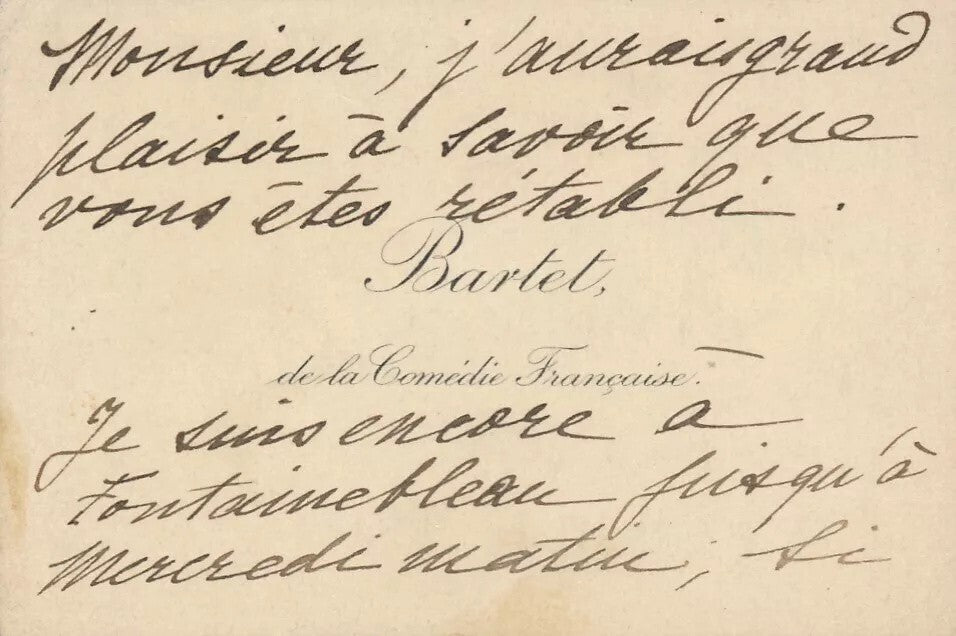 Monsieur, j'aurais grand
plaisir à savoir que
vous êtes rétabli.
Bartet,
de la Comédie Française.
Je suis encore à
Fontainebleau jusqu'à
Mercredi matin; si